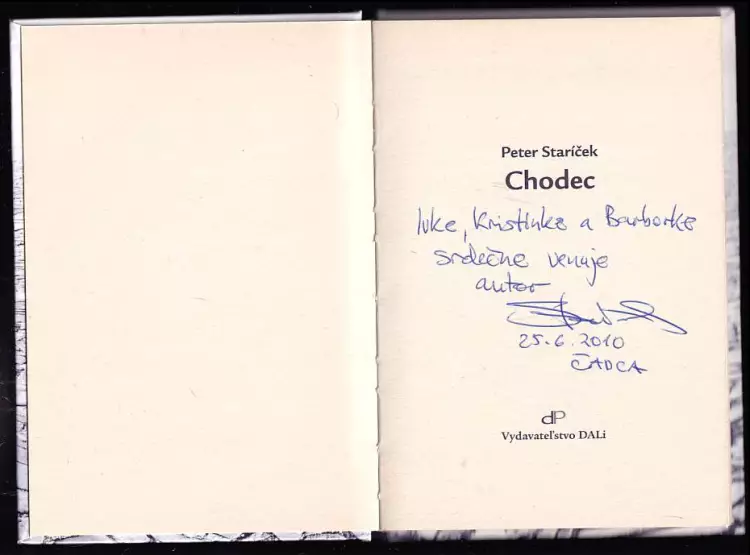 Peter Staríček
Chodec
Ivke, Kristinke a Barborke
srdečne venuje
autor
25.6.2010
ČADCA
dP
Vydavateľstvo DALi